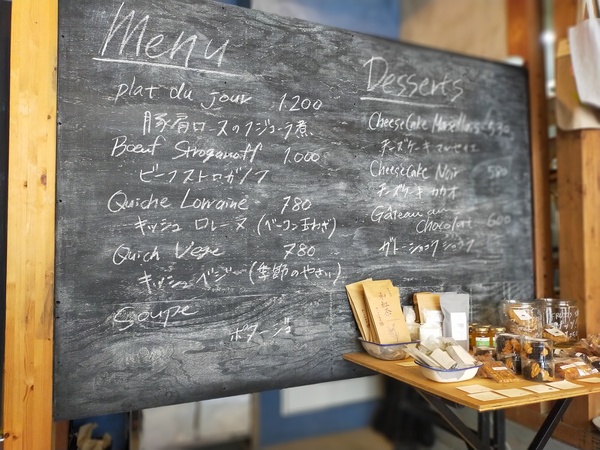 Menu
plat du jour 1.200
豚肩ロースの 煮
Boeuf Stroganoff 1.000
ビーフストロガノフ
Quiche Lorraine 780
キッシュ ロレーヌ (ベーコン玉ねぎ)
Quich Vege 780
キッシュ ベジ (季節のやさい)
Soupe
ポタージュ
Desserts
CheeseCake
チーズケーキ マルセイエ
CheeseCake Noir 580
チーズケーキ カカオ
Gâteau au
Chocolat 600
ガトーショコラ
紅茶